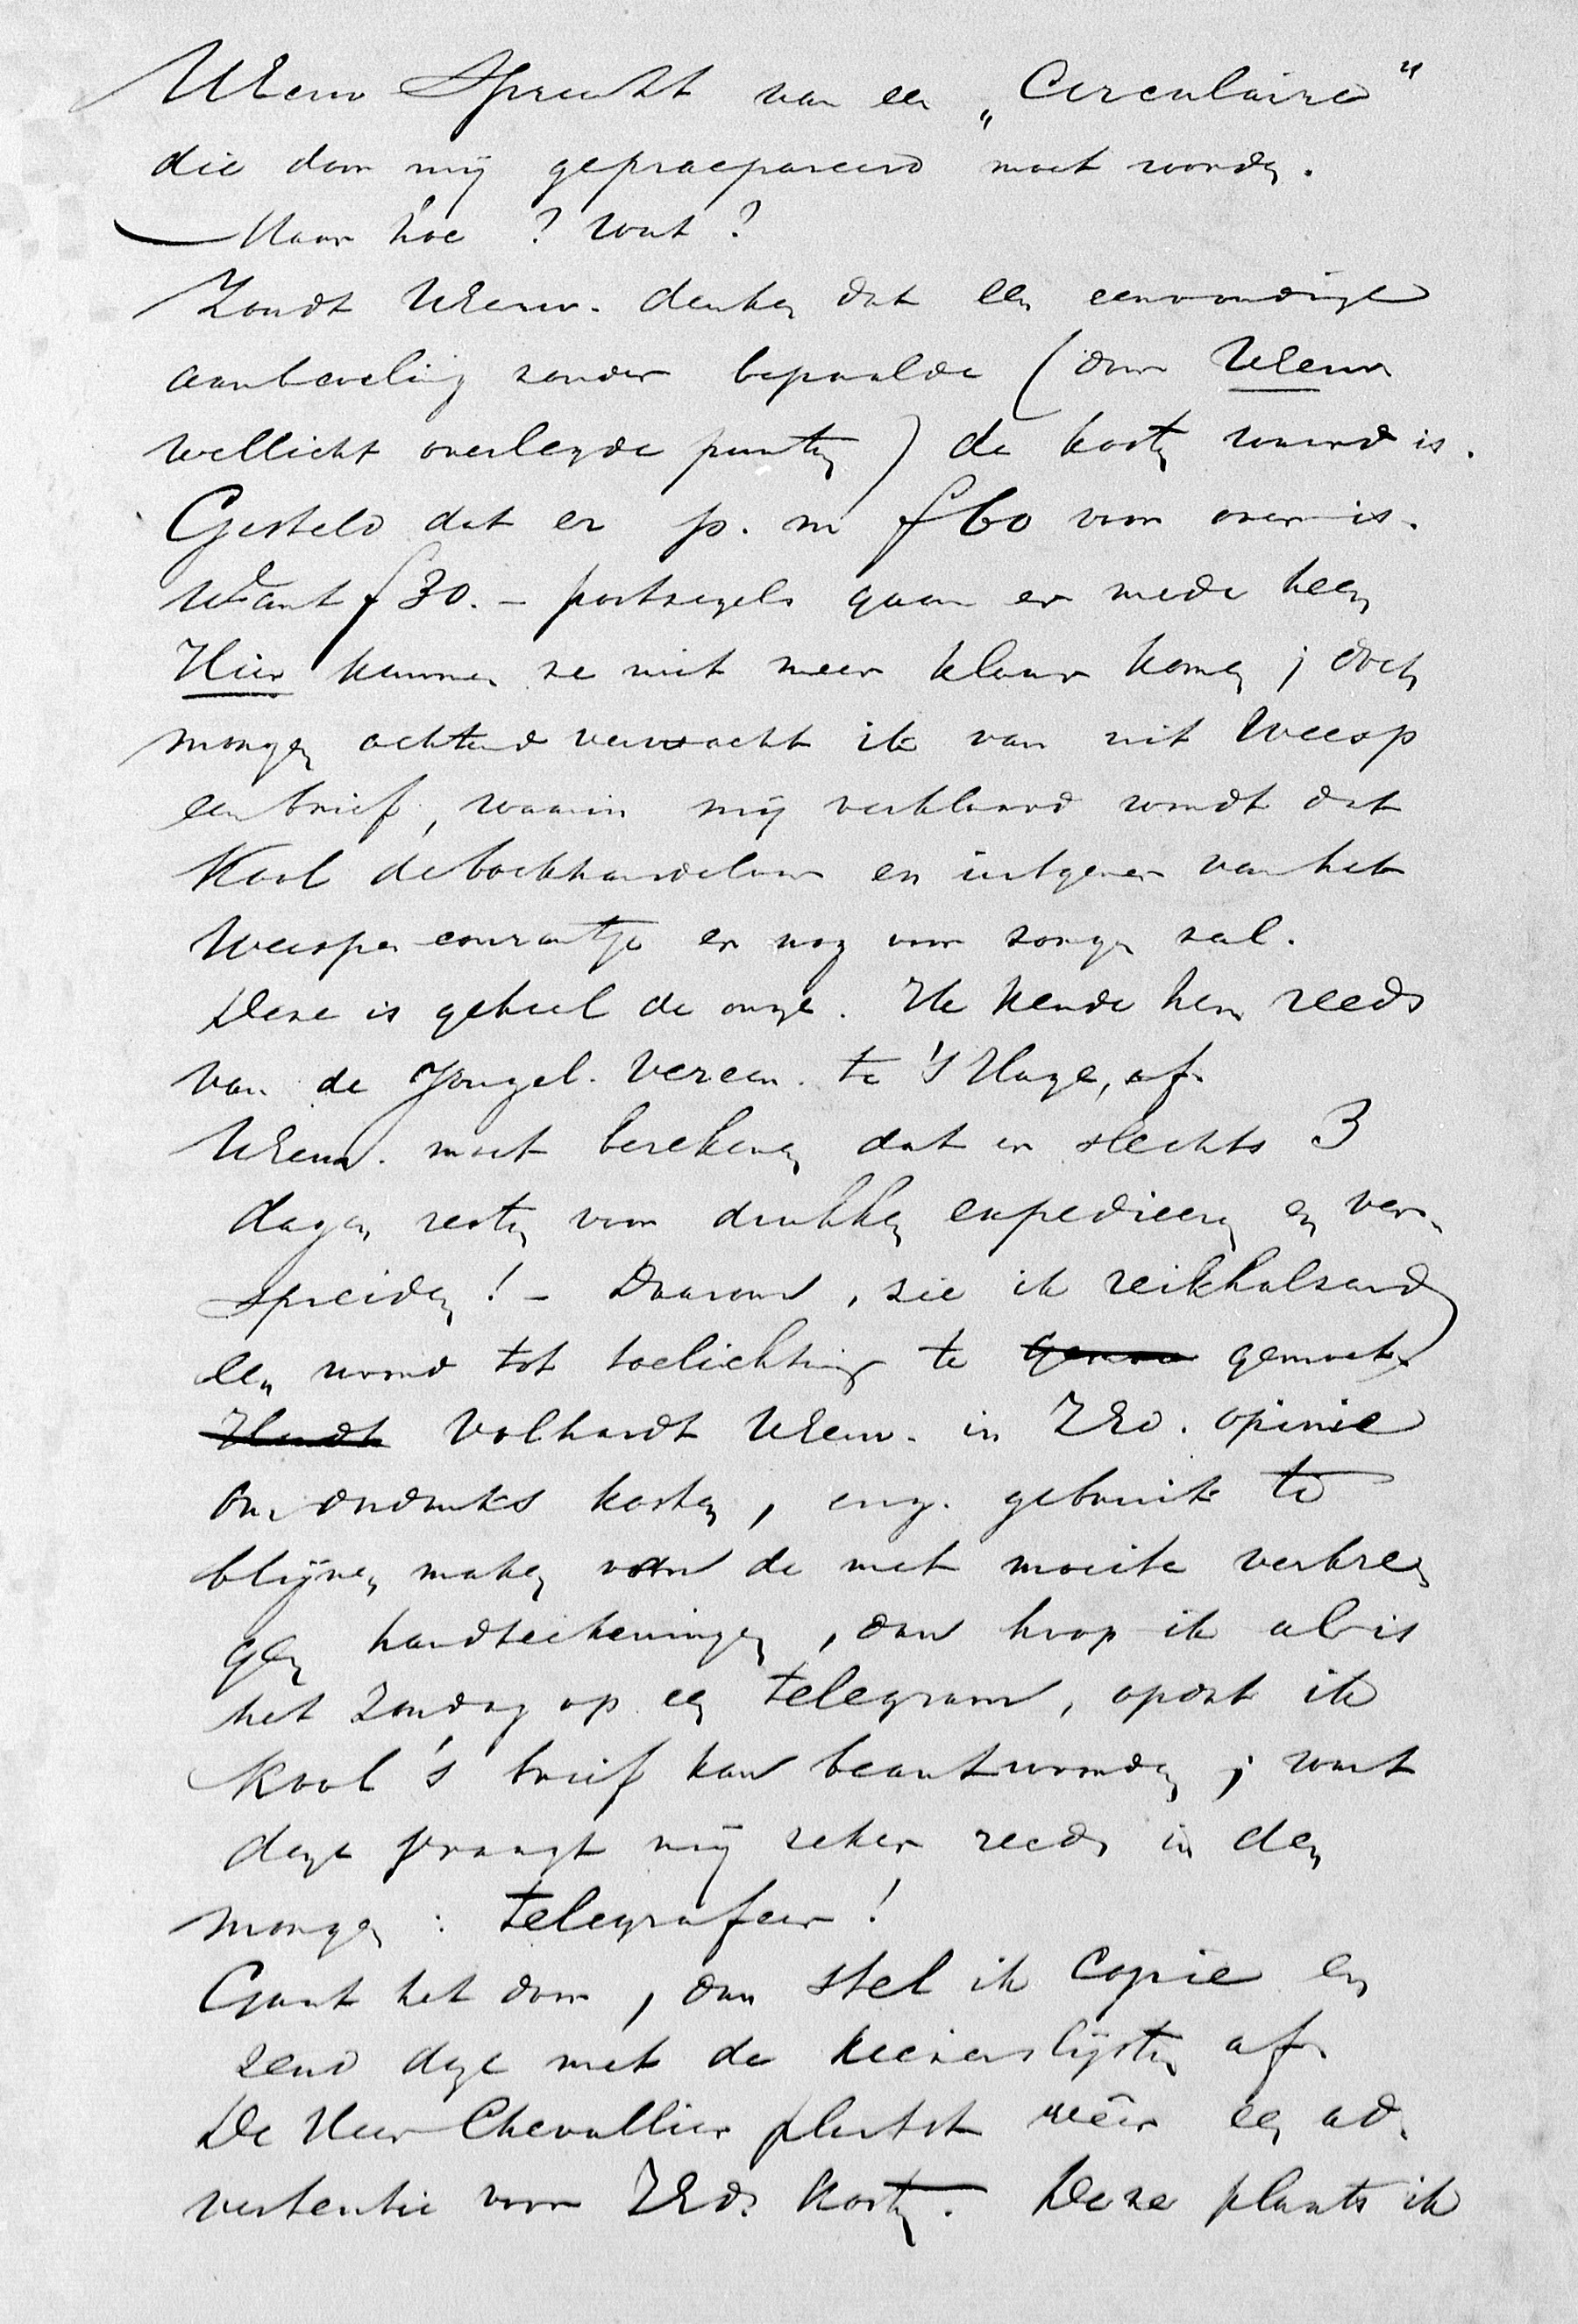 UEew Spreekt van een „Circulaire"
die door mij gepraepareerd moet worden.
Maar hoe? wat?
Zoudt UEeuw. denken dat een eenvoudige
aanbeveling zonder bepaalde (door UEeuw
wellicht overlegde punten) de kosten waard is.
Gesteld dat er p. m f60 voor over is.
Want f 30.- postzegels gaan er mede heen
Hier kunnen ze niet meer klaar komen; doch
morgen ochtend verwacht ik van uit Weesp
een brief, waarin mij verklaard wordt dat
Kool de boekhandelaar en uitgever van het
Weesper courantje er nog voor zorgen zal.
Deze is geheel de onze. Ik kende hem reeds
van de Jongel. Vereen. te 's Hage, af.
UEeuw. moet berekenen dat er slechts 3
dagen resten voor drukken expedieeren en ver-
spreiden! - Daarom, zie ik reikhalzend
een woord tot toelichting te gemoet.
Volhardt UEeuw. in ZEd. opinie
om ondanks kosten, enz. gebruik te
blijven maken van de met moeite verkre-
gen handteekeningen, dan hoop ik al is
het Zondag op een telegram, opdat ik
Kool's brief kan beantwoorden; want
deze vraagt mij zeker reeds in den
morgen: telegrafeer!
Gaat het door, dan stel ik copie en
zend deze met de kiezerslijsten af.
De Heer Chevallier plaatst wêer een ad-
vertentie voor ZEds kosten. Deze plaats ik